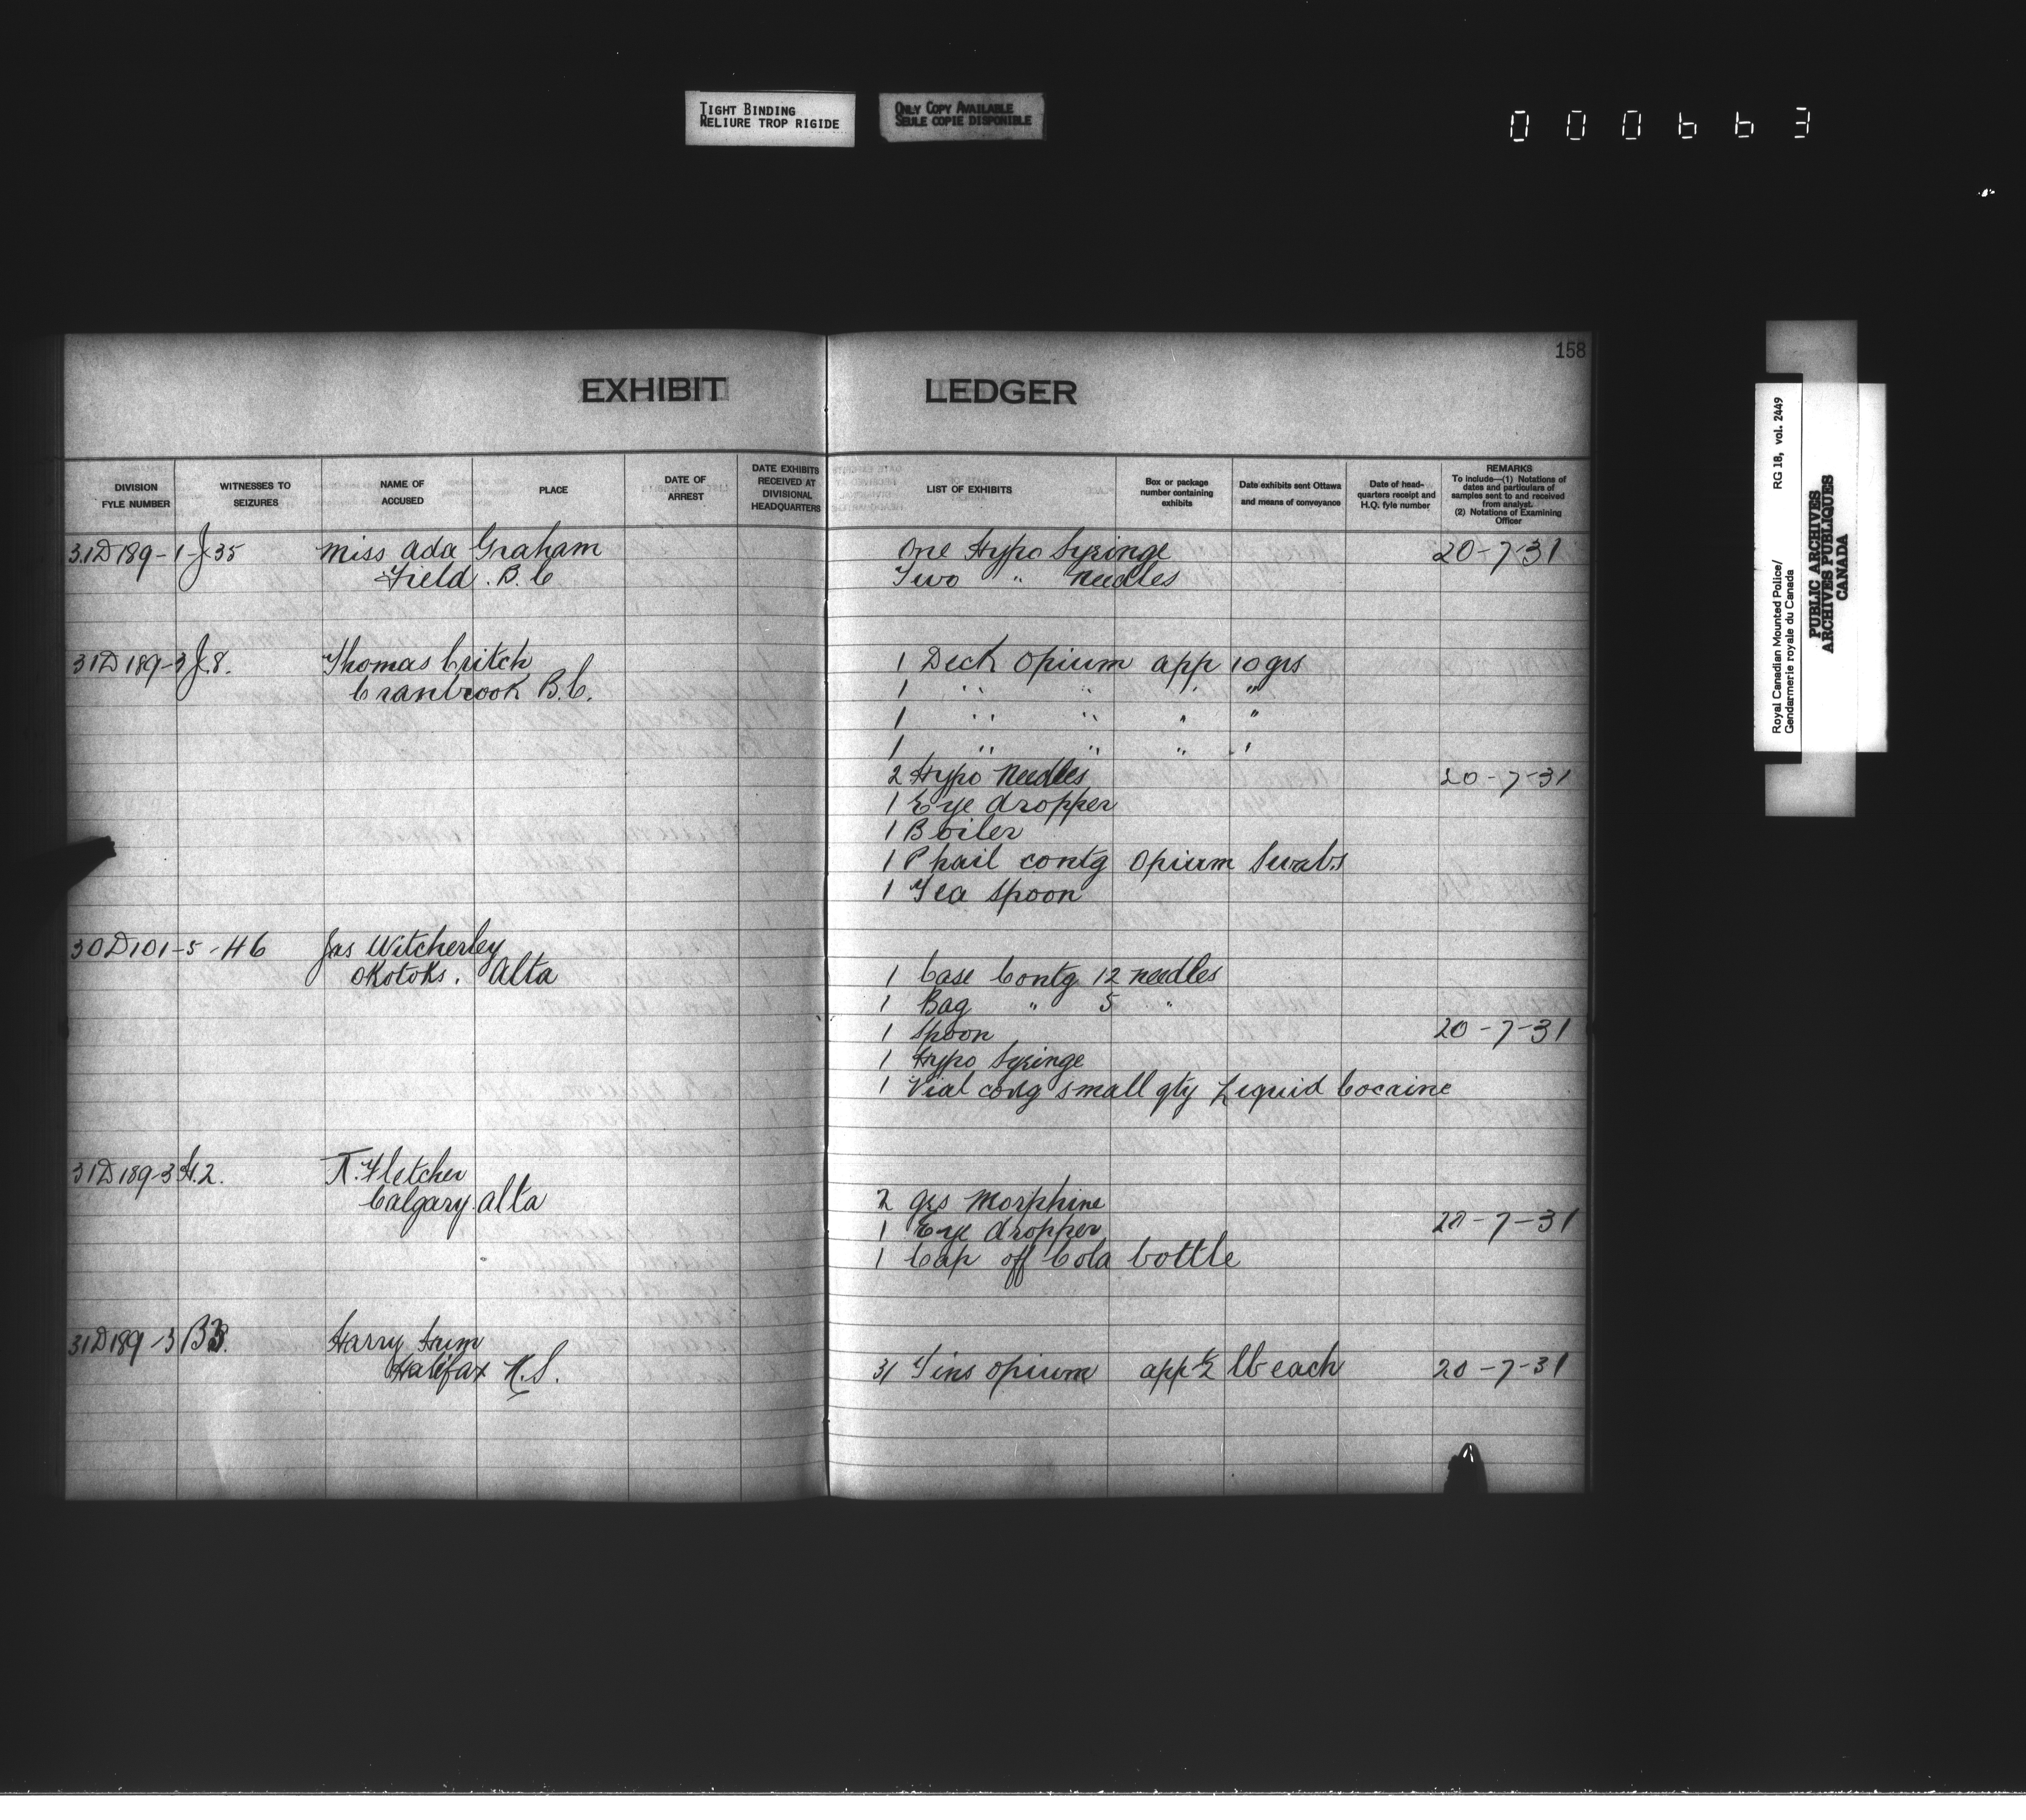 TIGHT BINDING
RELIURE TROP RIGIDE
ONLY COPY AVAILABLE
SEULE COPIE DISPONIBLE
000663
158
EXHIBIT LEDGER
DIVISION FYLE NUMBER
WITNESSES TO SEIZURES
NAME OF ACCUSED
PLACE
DATE OF ARREST
DATE EXHIBITS RECEIVED AT DIVISIONAL HEADQUARTERS
LIST OF EXHIBITS
Box or package number containing exhibits
Date exhibits sent Ottawa and means of conveyance
Date of head-quarters receipt and H.Q. fyle number
REMARKS
To include—(1) Notations of dates and particulars of samples sent to and received from analyst.
(2) Notations of Examining Officer
31D189-1-J.35 Miss Ada Graham One Hypo Syringe 20-7-31
Field. B.C Two " Needles
31D189-3 J.8. Thomas Critch 1 Deck Opium app 10 grs
Cranbrook B.C. 1 " " " "
1 " " " "
1 " " " "
2 Hypo Needles 20-7-31
1 Eye dropper
1 Boiler
1 Phail contg Opium Swabs
1 Tea Spoon
30D101-5-H6 Jas Witcherley
Okotoks. Alta 1 Case Contg 12 needles
1 Bag " 5 "
1 Spoon 20-7-31
1 Hypo Syringe
1 Vial contg small qty Liquid Cocaine
31D189-3 H.2. Fletcher
Calgary. Alta 2 grs Morphine
1 Eye dropper 20-7-31
1 Cap off Cola bottle
31D189-3 Harry Hum
Halifax N.S. 31 Tins Opium app ½ lb each 20-7-31
Royal Canadian Mounted Police/
Gendarmerie royale du Canada
RG 18, vol. 2449
PUBLIC ARCHIVES
ARCHIVES PUBLIQUES
CANADA